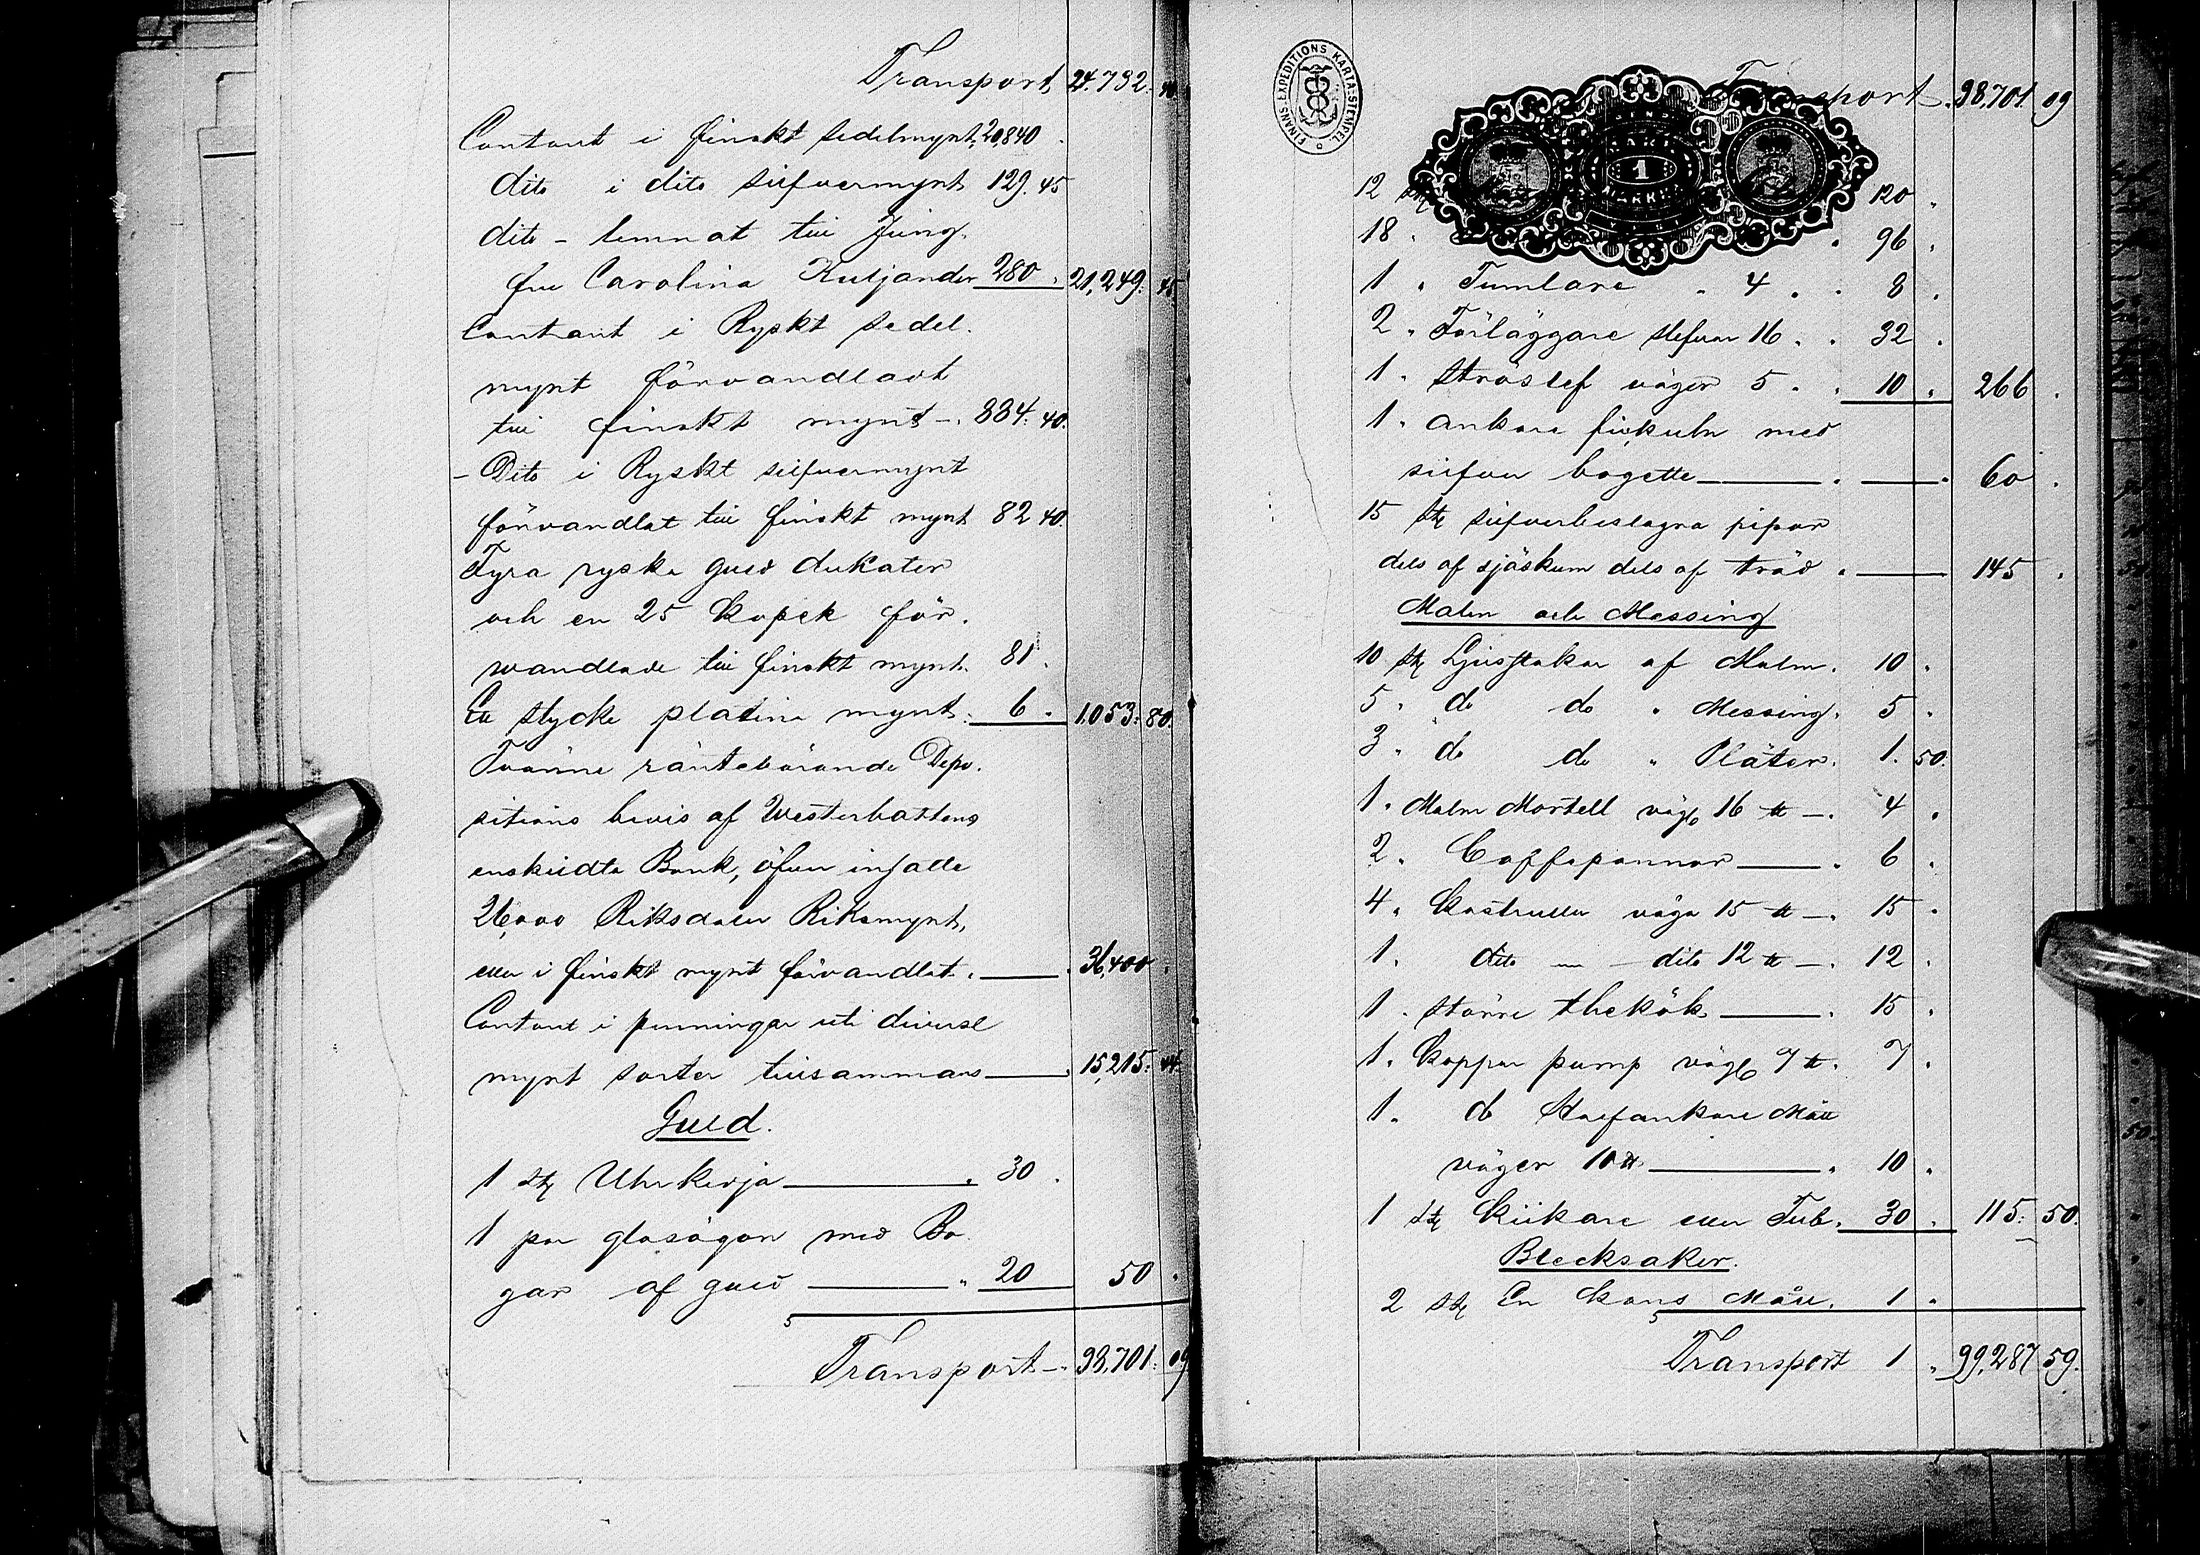 Transport 24.732. 40
Contant i finskt sedelmynt. 20,840 .
dito i dito silfvermynt 129. 45
dito - lemnat till Jung.
fru Carolina Kuljander 280 . 21,249. 45
Contant i Ryskt sedel.
mynt förvandladt
till finskt mynt -. 884. 40.
- Dito i Ryskt silfvermynt
förvandlat till finskt mynt 82 40.
Fyra ryska guld dukater
och en 25 Kopek för.
wandlade till finskt mynt. 81 .
Ett stycke platina mynt. 6 . 1.053. 80.
Tvänne räntebärande Depo.
sitions bevis af Westerbottens
enskildta Bank, öfver in salla
26,000 Riksdaler Riksmynt,
eller i finskt mynt förvandlat. . 36,400 .
Contant i penningar uti diverse
mynt sorter tillsammans . 15,215. 44
Guld.
1 st Uhrkedja . 30 .
1 par glasögon med Bo
gar af guld . 20 50 .
Transport -. 98,701. 09
FINANS-EXPEDITIONS KARTA-STEMPEL
Transport . 98,701 09
1
12 st 120 .
18 . . 96 .
1 . Tumlare . 4 . . 8 .
2 . Förläggare slefvar 16 . . 32 .
1 . Ströslef väger 5 . . 10 . 266 .
1 . ankare med
silfver bogette . . 60 .
15 st silfverbeslagna pipor
dels af sjöskum dels af träd . 145 .
Malm och Messing
10 st Ljusstakar af Malm . 10 .
5 . do do . Messing. 5 .
3 . do do . Pläter. 1. 50.
1 . Malm Mortell väg 16 ℔ -. 4 .
2 . Caffepannor . 6 .
4 . Kastruller väga 15 ℔ -. 15 .
1 . dito - dito 12 ℔ -. 12 .
1 . större thekök . 15 .
1 . Koppar pump väg 7 ℔. 7 .
1 . do Halfankare Mått
väger 10 ℔ . 10 .
1 st Kiikare eller Tub. 30 . 115. 50.
Blecksaker.
2 st En Kans Mått. 1 .
Transport 1 . 99,287 59.